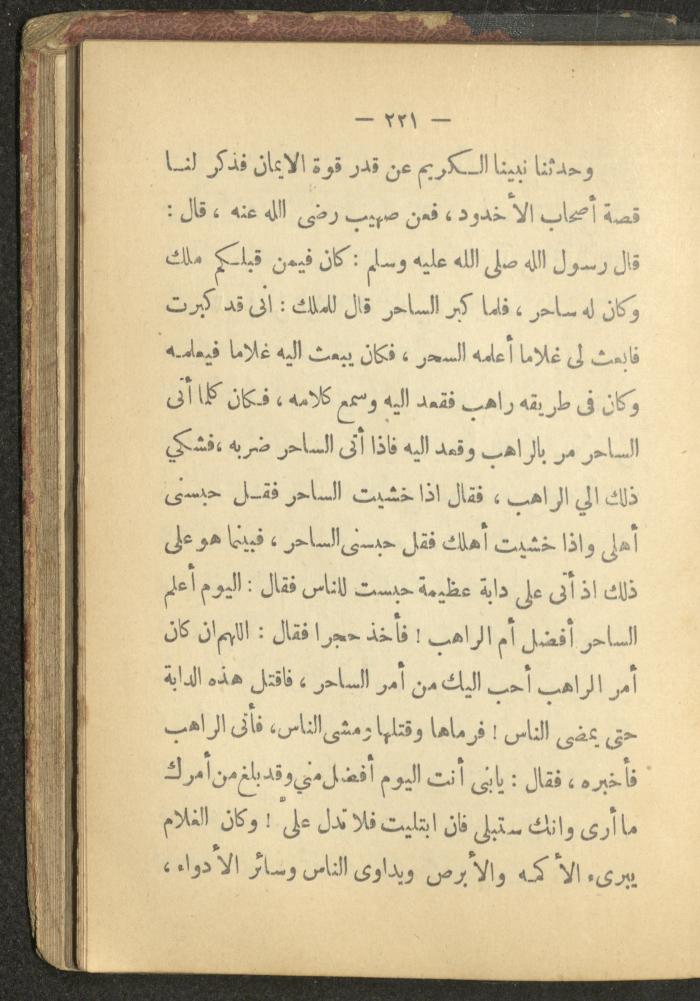 — ٢٢١ —
وحدثنا نبينا الـكريم عن قدر قوة الايمان فذكر لنـا
قصة أصحاب الأخدود ، فعن صهيب رضى الله عنه ، قال :
قال رسول الله صلى الله عليه وسلم : كان فيمن قبلـكم ملك
وكان له ساحر ، فلما كبر الساحر قال للملك : انى قد كبرت
فابعث لى غلاما أعلمه السحر ، فكان يبعث اليه غلاما فيعلمـه
وكان فى طريقه راهب فقعد اليه وسمع كلامه ، فـكان كلما أتى
الساحر مر بالراهب وقعد اليه فاذا أتى الساحر ضربه ،فشكي
ذلك الي الراهب ، فقال اذا خشيت الساحر فقـل حبسنى
أهلى واذا خشيت أهلك فقل حبسنى الساحر ، فبينما هو على
ذلك اذ أتى على دابة عظيمة حبست للناس فقال : اليوم أعلم
الساحر أفضل أم الراهب ! فأخذ حجرا فقال : اللهم ان كان
أمر الراهب أحب اليك من أمر الساحر ، فاقتل هذه الدابة
حتى يمضى الناس ! فرماها وقتلها ومشى الناس، فأتى الراهب
فأخبره ، فقال : يابنى أنت اليوم أفضل مني وقد بلغ من أمرك
ما أرى وانك ستبلى فان ابتليت فلا تدل علىّ ! وكان الغلام
يبرىء الأكمـه والأبرص ويداوى الناس وسائر الأدواء ،